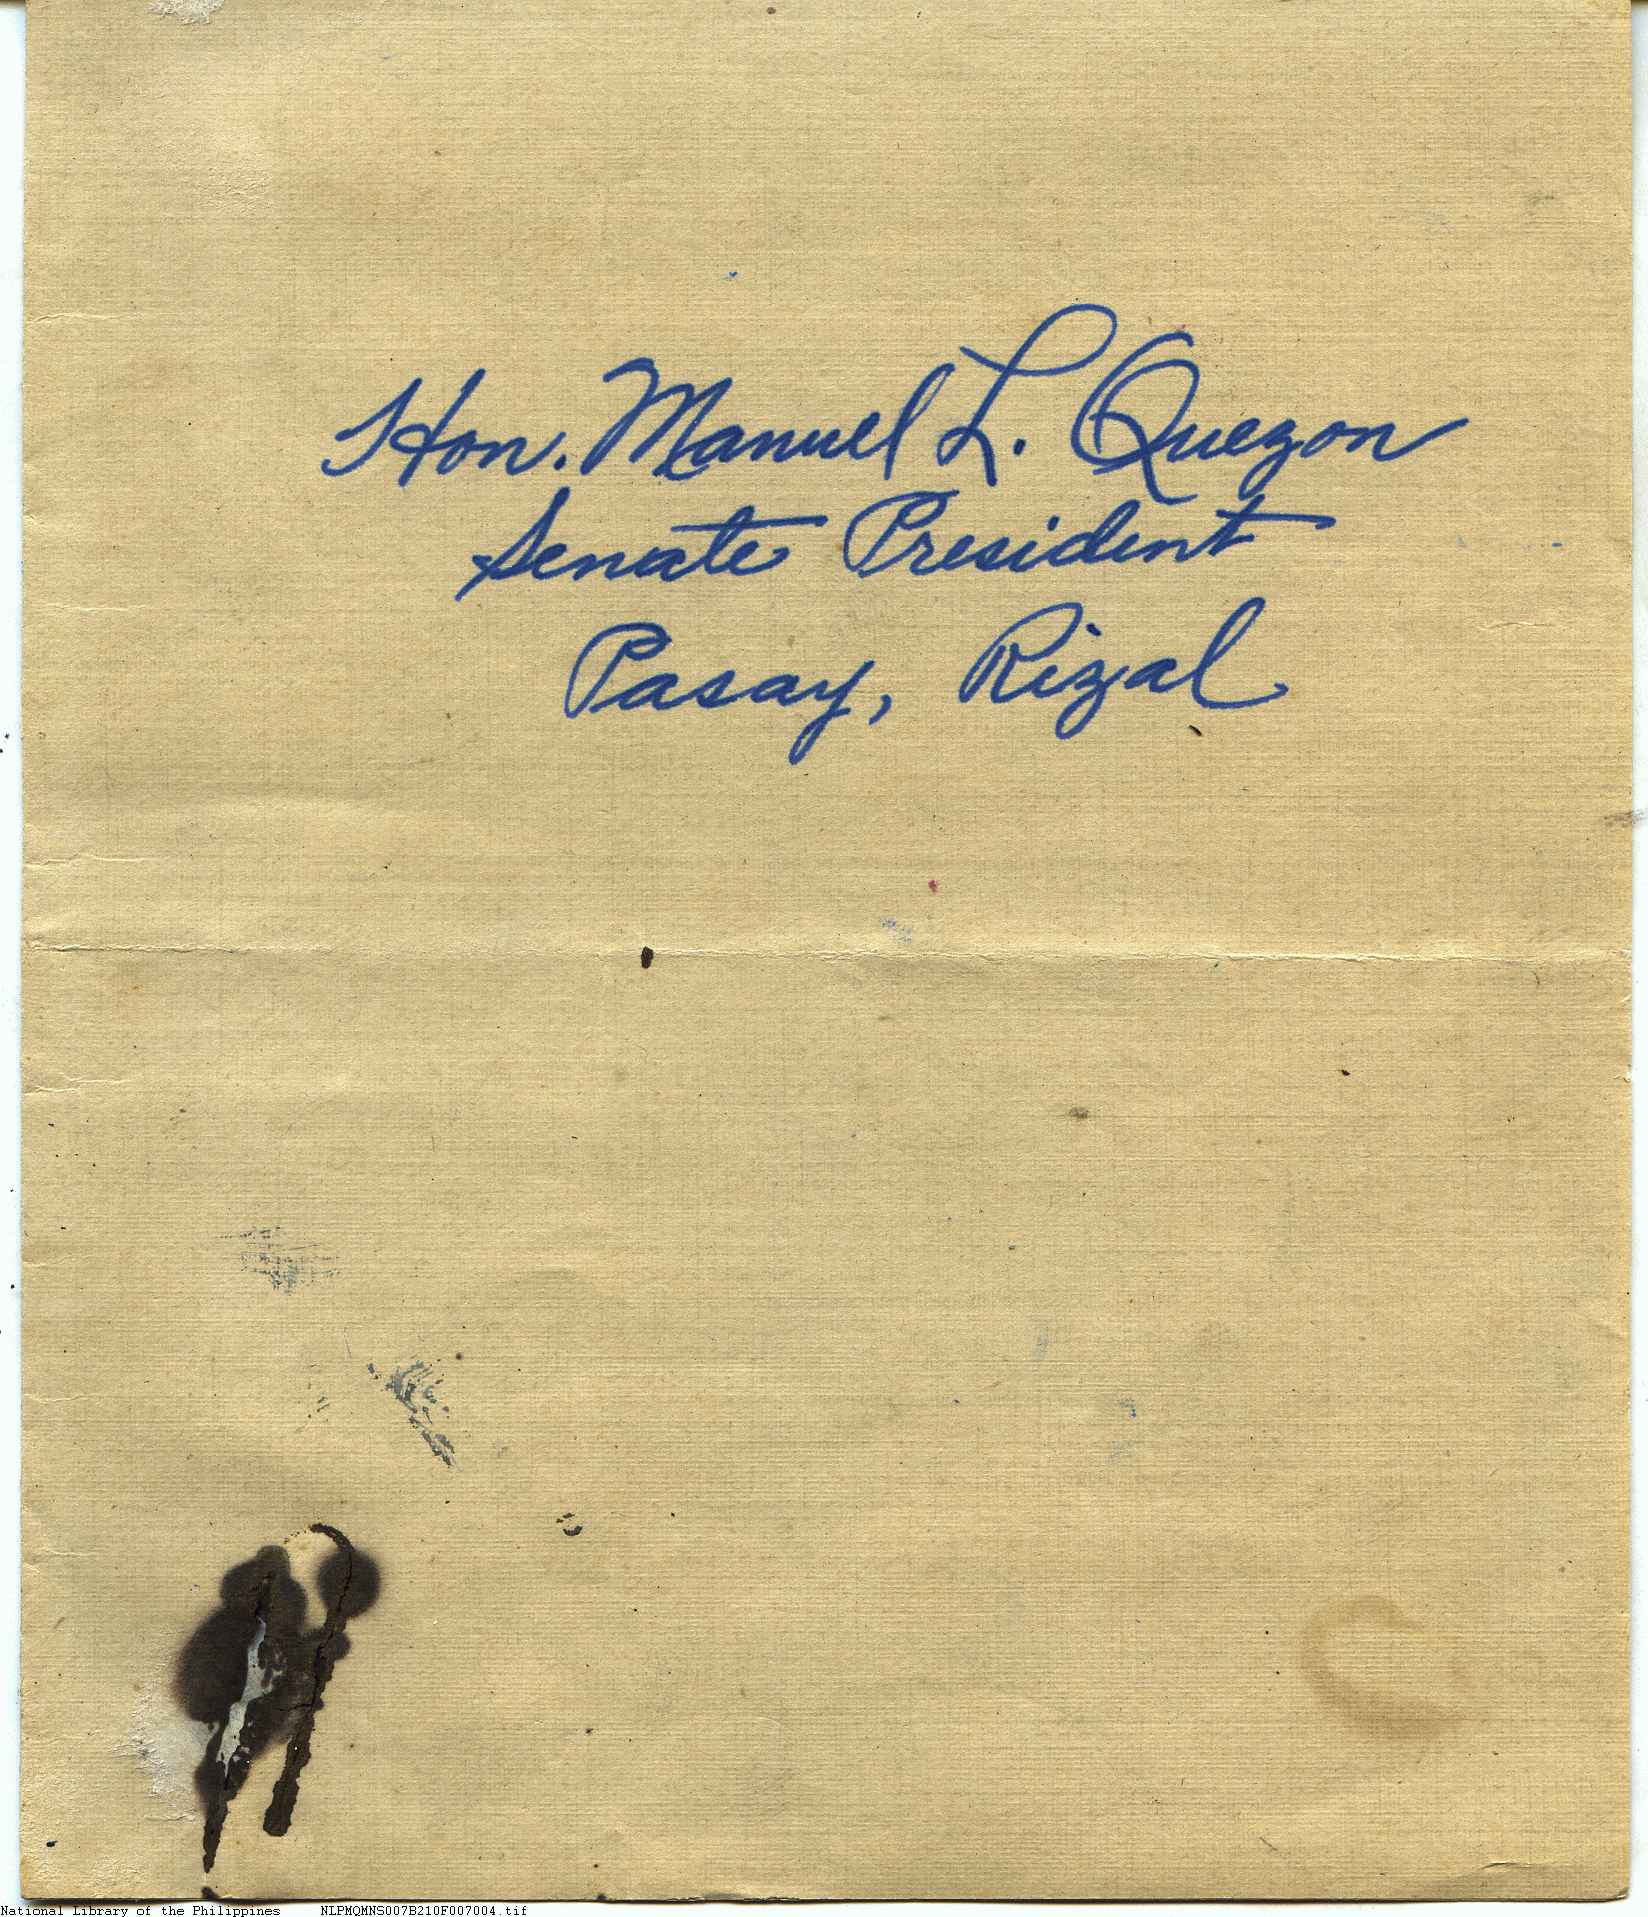 Hon. Manuel L. Quezon
Senate President
Pasay, Rizal
National Library of the Philippines NLPMQMNS007B210F007004.tif